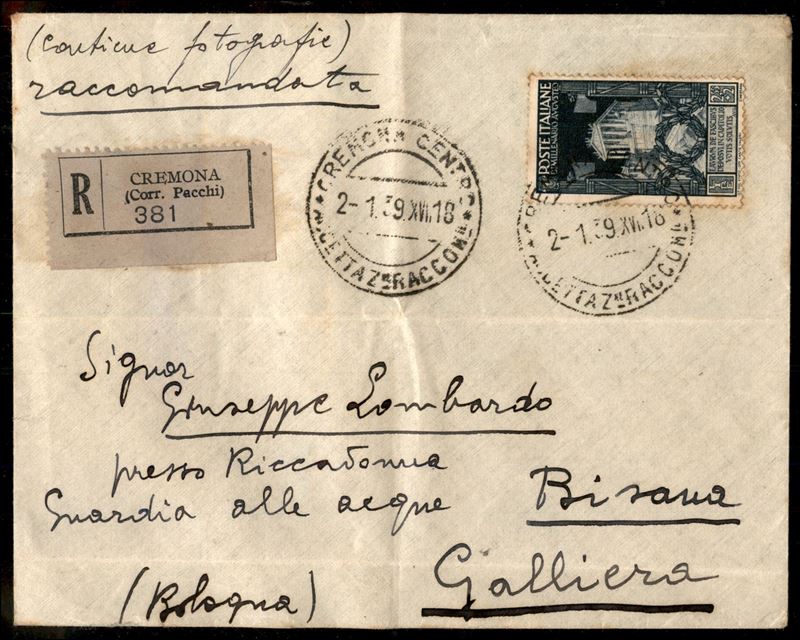 (contiene fotografie)
raccomandata
R
CREMONA
(Corr. Pacchi)
381
CREMONA CENTRO
2-1.39.XVII.18
ACCETTAZNE RACCOM
POSTE ITALIANE
BIMILLENARIO AVGVSTEO
VOTIS SOLVTIS
2-1.39.XVII.18
ACCETTAZNE RACCOM
Signor
Giuseppe Lombardo
presso Riccadonna
Guardia alle acque
Bisana
Galliera
(Bologna)